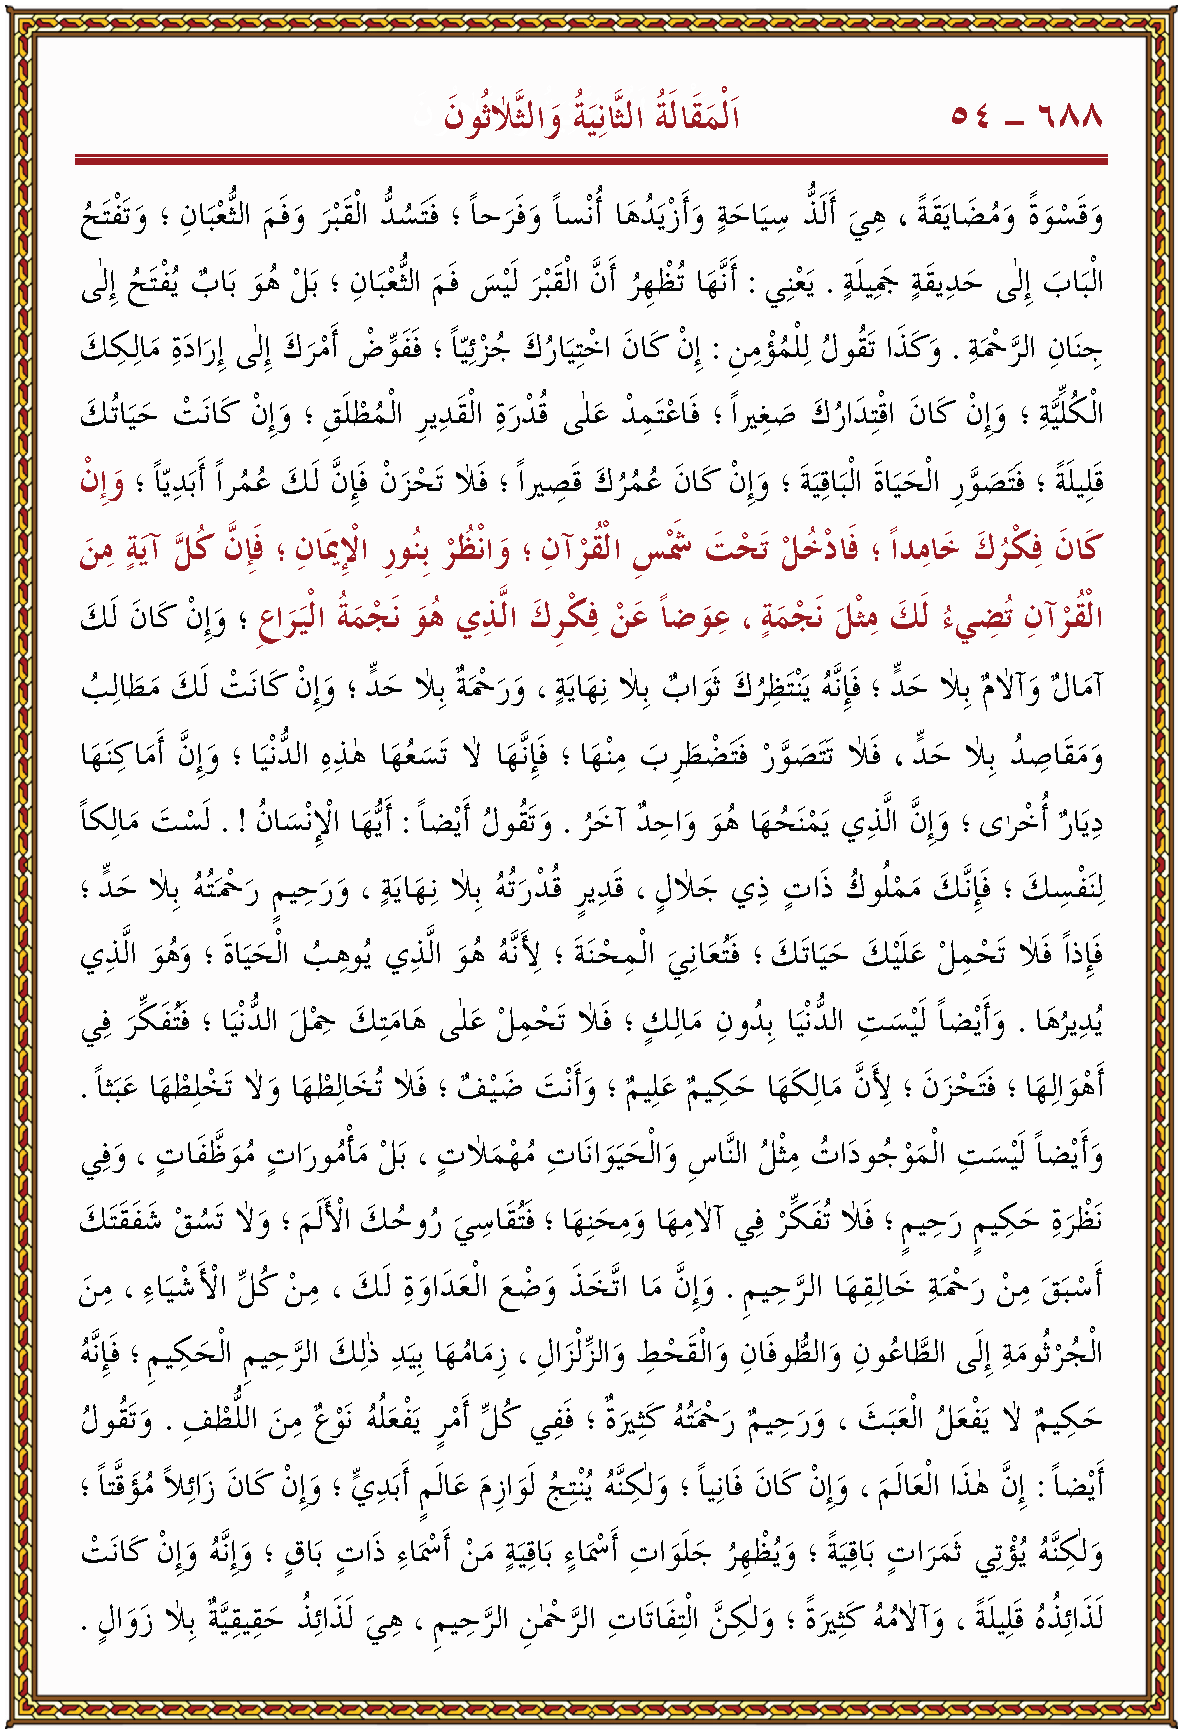 ٦٨٨ ــ ٥٤ اَلْمَقَالَةُ الثَّانِيَةُ وَالثَّلَاثُونَ
وَقَسْوَةً وَمُضَايَقَةً ، هِيَ أَلَذُّ سِيَاحَةٍ وَأَزْيَدُهَا أُنْساً وَفَرَحاً ؛ فَتَسُدُّ الْقَبْرَ وَفَمَ الثُّعْبَانِ ؛ وَتَفْتَحُ
الْبَابَ إِلَى حَدِيقَةٍ جَمِيلَةٍ . يَعْنِي : أَنَّهَا تُظْهِرُ أَنَّ الْقَبْرَ لَيْسَ فَمَ الثُّعْبَانِ ؛ بَلْ هُوَ بَابٌ يُفْتَحُ إِلَى
جِنَانِ الرَّحْمَةِ . وَكَذَا تَقُولُ لِلْمُؤْمِنِ : إِنْ كَانَ اخْتِيَارُكَ جُزْئِيّاً ؛ فَفَوِّضْ أَمْرَكَ إِلَى إِرَادَةِ مَالِكِكَ
الْكُلِّيَّةِ ؛ وَإِنْ كَانَ اقْتِدَارُكَ صَغِيراً ؛ فَاعْتَمِدْ عَلَى قُدْرَةِ الْقَدِيرِ الْمُطْلَقِ ؛ وَإِنْ كَانَتْ حَيَاتُكَ
قَلِيلَةً ؛ فَتَصَوَّرِ الْحَيَاةَ الْبَاقِيَةَ ؛ وَإِنْ كَانَ عُمُرُكَ قَصِيراً ؛ فَلَا تَحْزَنْ فَإِنَّ لَكَ عُمُراً أَبَدِيّاً ؛ وَإِنْ
كَانَ فِكْرُكَ خَامِداً ؛ فَادْخُلْ تَحْتَ شَمْسِ الْقُرْآنِ ؛ وَانْظُرْ بِنُورِ الْإِيمَانِ ؛ فَإِنَّ كُلَّ آيَةٍ مِنَ
الْقُرْآنِ تُضِيءُ لَكَ مِثْلَ نَجْمَةٍ ، عِوَضاً عَنْ فِكْرِكَ الَّذِي هُوَ نَجْمَةُ الْيَرَاعِ ؛ وَإِنْ كَانَ لَكَ
آمَالٌ وَآلَامٌ بِلَا حَدٍّ ؛ فَإِنَّهُ يَنْتَظِرُكَ ثَوَابٌ بِلَا نِهَايَةٍ ، وَرَحْمَةٌ بِلَا حَدٍّ ؛ وَإِنْ كَانَتْ لَكَ مَطَالِبُ
وَمَقَاصِدُ بِلَا حَدٍّ ، فَلَا تَتَصَوَّرْ فَتَضْطَرِبَ مِنْهَا ؛ فَإِنَّهَا لَا تَسَعُهَا هٰذِهِ الدُّنْيَا ؛ وَإِنَّ أَمَاكِنَهَا
دِيَارٌ أُخْرٰى ؛ وَإِنَّ الَّذِي يَمْنَحُهَا هُوَ وَاحِدٌ آخَرُ . وَتَقُولُ أَيْضاً : أَيُّهَا الْإِنْسَانُ ! . لَسْتَ مَالِكاً
لِنَفْسِكَ ؛ فَإِنَّكَ مَمْلُوكُ ذَاتٍ ذِي جَلَالٍ ، قَدِيرٍ قُدْرَتُهُ بِلَا نِهَايَةٍ ، وَرَحِيمٍ رَحْمَتُهُ بِلَا حَدٍّ ؛
فَإِذاً فَلَا تَحْمِلْ عَلَيْكَ حَيَاتَكَ ؛ فَتُعَانِيَ الْمِحْنَةَ ؛ لِأَنَّهُ هُوَ الَّذِي يُوهِبُ الْحَيَاةَ ؛ وَهُوَ الَّذِي
يُدِيرُهَا . وَأَيْضاً لَيْسَتِ الدُّنْيَا بِدُونِ مَالِكٍ ؛ فَلَا تَحْمِلْ عَلَى هَامَتِكَ حِمْلَ الدُّنْيَا ؛ فَتُفَكِّرَ فِي
أَهْوَالِهَا ؛ فَتَحْزَنَ ؛ لِأَنَّ مَالِكَهَا حَكِيمٌ عَلِيمٌ ؛ وَأَنْتَ ضَيْفٌ ؛ فَلَا تُخَالِطْهَا وَلَا تَخْلِطْهَا عَبَثاً .
وَأَيْضاً لَيْسَتِ الْمَوْجُودَاتُ مِثْلُ النَّاسِ وَالْحَيَوَانَاتِ مُهْمَلَاتٍ ، بَلْ مَأْمُورَاتٍ مُوَظَّفَاتٍ ، وَفِي
نَظْرَةِ حَكِيمٍ رَحِيمٍ ؛ فَلَا تُفَكِّرْ فِي آلَامِهَا وَمِحَنِهَا ؛ فَتُقَاسِيَ رُوحُكَ الْأَلَمَ ؛ وَلَا تَسُقْ شَفَقَتَكَ
أَسْبَقَ مِنْ رَحْمَةِ خَالِقِهَا الرَّحِيمِ . وَإِنَّ مَا اتَّخَذَ وَضْعَ الْعَدَاوَةِ لَكَ ، مِنْ كُلِّ الْأَشْيَاءِ ، مِنَ
الْجُرْثُومَةِ إِلَى الطَّاعُونِ وَالطُّوفَانِ وَالْقَحْطِ وَالزِّلْزَالِ ، زِمَامُهَا بِيَدِ ذٰلِكَ الرَّحِيمِ الْحَكِيمِ ؛ فَإِنَّهُ
حَكِيمٌ لَا يَفْعَلُ الْعَبَثَ ، وَرَحِيمٌ رَحْمَتُهُ كَثِيرَةٌ ؛ فَفِي كُلِّ أَمْرٍ يَفْعَلُهُ نَوْعٌ مِنَ اللُّطْفِ . وَتَقُولُ
أَيْضاً : إِنَّ هٰذَا الْعَالَمَ ، وَإِنْ كَانَ فَانِياً ؛ وَلٰكِنَّهُ يُنْتِجُ لَوَازِمَ عَالَمٍ أَبَدِيٍّ ؛ وَإِنْ كَانَ زَائِلاً مُؤَقَّتاً ؛
وَلٰكِنَّهُ يُؤْتِي ثَمَرَاتٍ بَاقِيَةً ؛ وَيُظْهِرُ جَلَوَاتِ أَسْمَاءٍ بَاقِيَةٍ مَنْ أَسْمَاءِ ذَاتٍ بَاقٍ ؛ وَإِنَّهُ وَإِنْ كَانَتْ
لَذَائِذُهُ قَلِيلَةً ، وَآلَامُهُ كَثِيرَةً ؛ وَلٰكِنَّ الْتِفَاتَاتِ الرَّحْمٰنِ الرَّحِيمِ ، هِيَ لَذَائِذُ حَقِيقِيَّةٌ بِلَا زَوَالٍ .